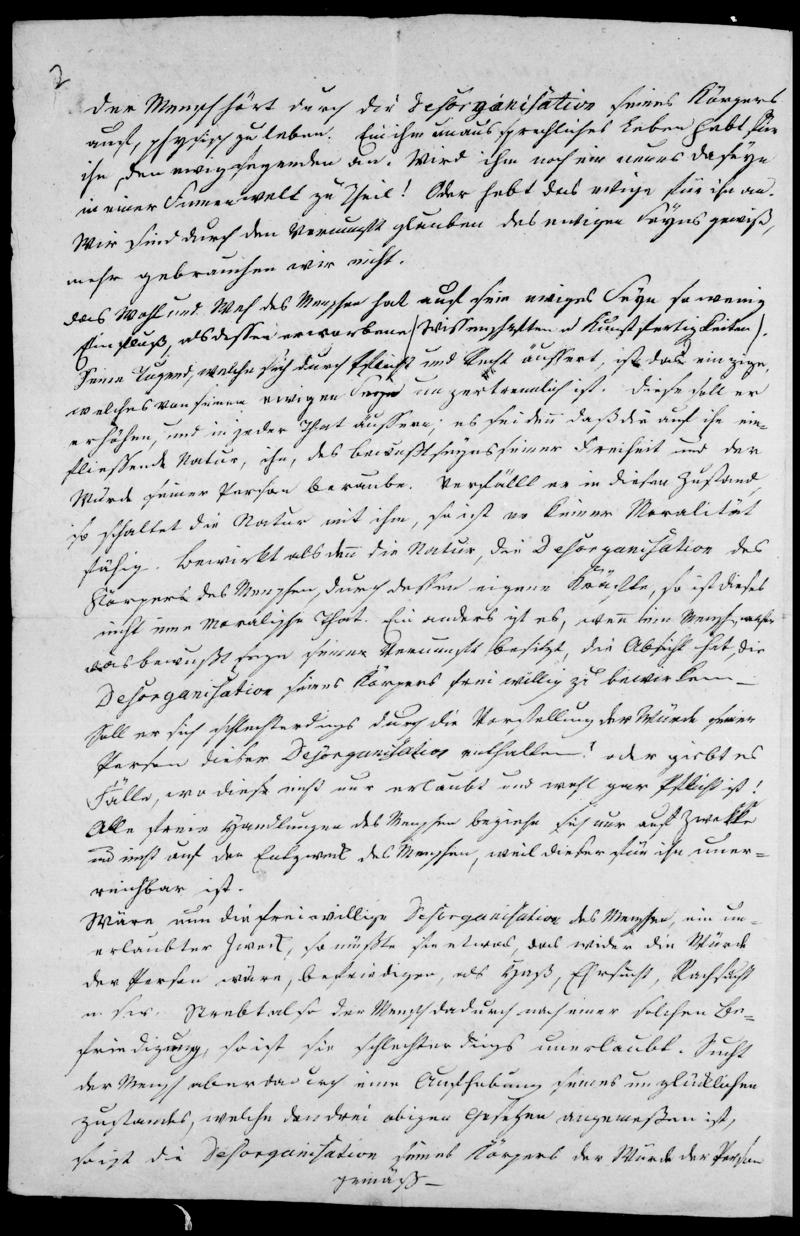 2
der Mensch hört durch die Desorganisation seines Körpers
auf, physisch zu leben. Ein ihm unaussprechliches Leben hebt für
ihn, den ewig seyenden an. Wird ihm noch ein neues daseyn
in einer Sinnenwelt zu Theil! Oder hebt das ewige für ihn an.
Wir sind durch den Vernunftglauben des ewigen Seyns gewiß,
mehr gebrauchen wir nicht.
das Wohl und Weh des Menschen hat auf sein ewiges Seyn so wenig
Einfluß, als dessen erworbene (Wissenschaften u Kunstfertigkeiten).
Seine Tugend, welche sich durch Pflicht und Recht äussert, ist das einzige,
welches von seinem ewigen Seyn unzertrennlich ist. diese soll er
erhöhen, und in jeder That äussern; es sei denn daß die auf ihn ein-
fliessende Natur, ihn, des bewußtseyns seiner Freiheit und der
Würde seiner Person beraube. Verfällt er in diesen Zustand,
so schaltet die Natur mit ihm, so ist er keiner Moralität
fähig. Bewirkt alsdenn die Natur, die Desorganisation des
Körpers des Menschen, durch dessen eigene Kräfte, so ist dieses
nicht eine Moralische That. Ein anders ist es, wenn ein Mensch, welcher
das bewußtseyn seiner Vernunft besitzt, die Absicht hat, die
Desorganisation seines Körpers freiwillig zu bewirken –
Soll er sich schlechterdings durch die Vorstellung der Würde seiner
Person dieser Desorganisation enthalten! oder giebt es
Fälle, wo diese nicht nur erlaubt und wohl gar Pflicht ist!
Alle freie Handlungen des Menschen beziehn sich nur auf Zwekke
und nicht auf den Endzweck des Menschen, weil dieser für ihn uner=
reichbar ist.
Wäre nun die freiwillige Desorganisation des Menschen, ein un-
erlaubter Zweck, so müßte sie etwas, das wider die Würde
der Person wäre, befriedigen, als Haß, Ehrsucht, Rachsucht
u. s. w. Strebt also der Mensch dadurch nach einer solchen Be=
friedigung, so ist sie schlechterdings unerlaubt. Sucht
der Mensch aber dadurch eine Aufhebung seines unglücklichen
Zustandes, welche den drei obigen Gesetzen angemeßen ist,
so ist die Desorganisation seines Körpers der Würde der Person
gemäß –